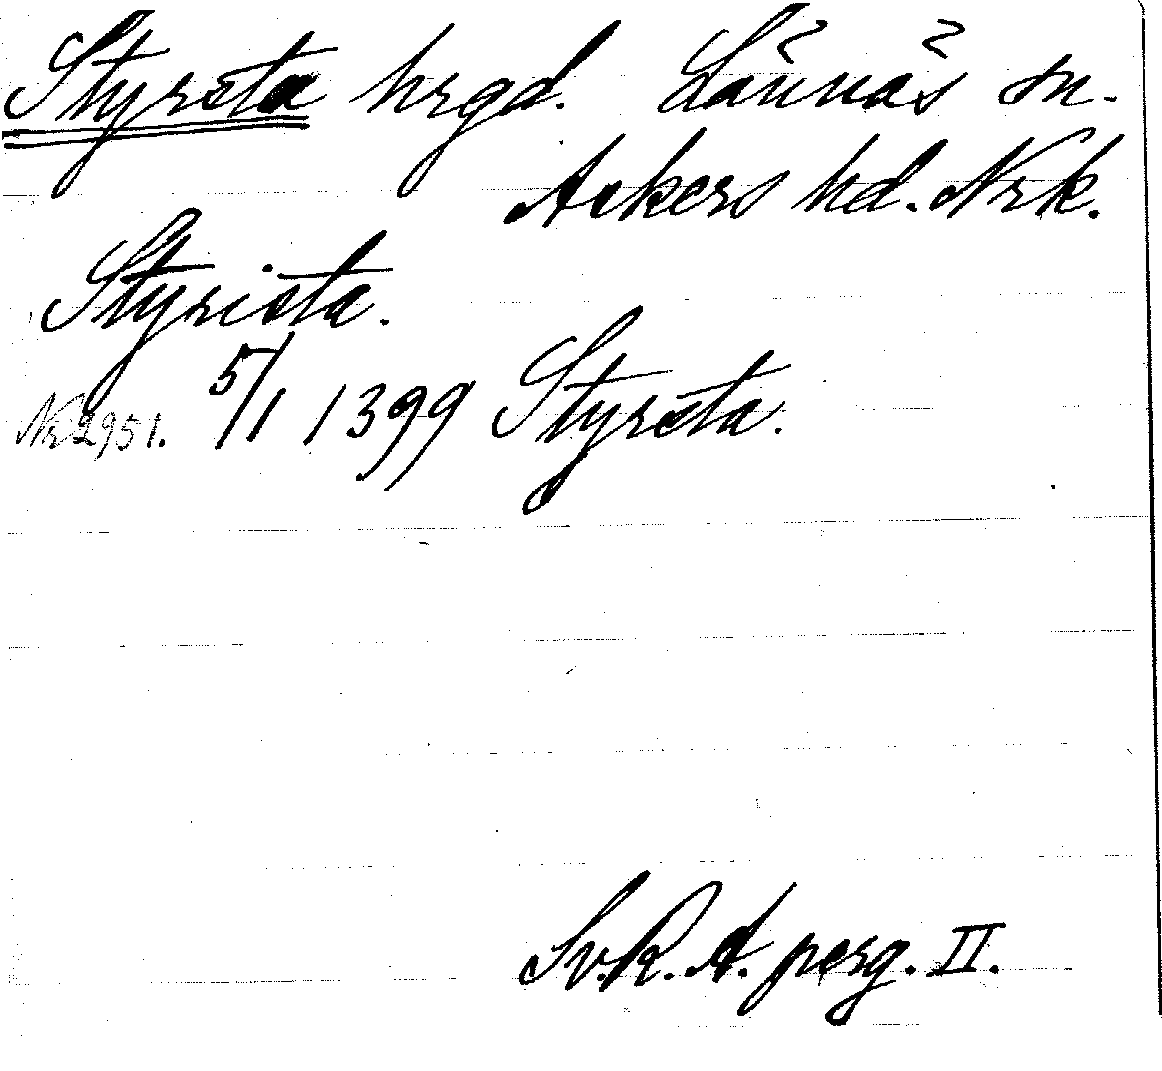 Styrsta hrgd. Lännäs sn.
Askers hd. Nrk.
Styrista.
Nr 2951. 5/1 1399 Styrsta.
Sv. R. A. perg. II.